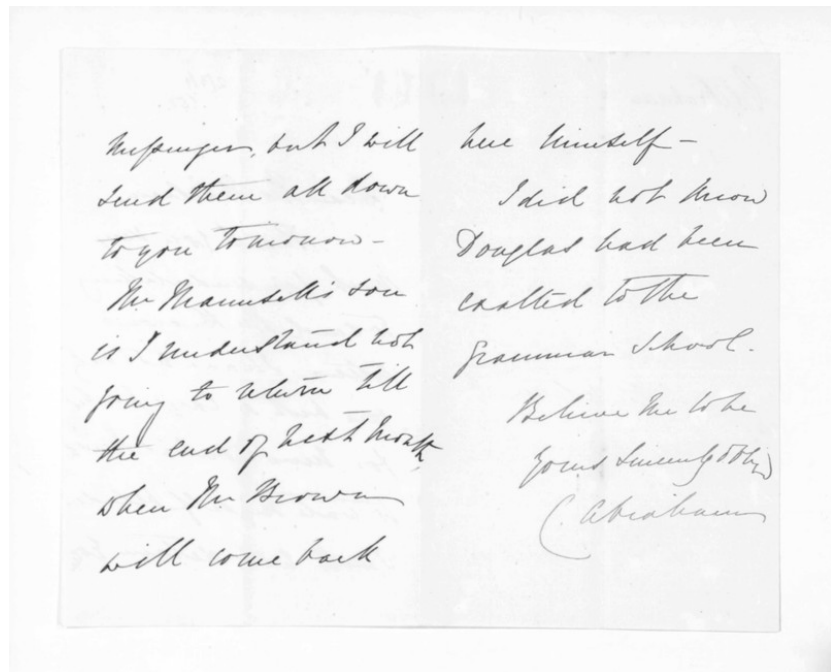 Messenger, but I will
send them all down
to you tomorrow –
Mr Maunsell's son
is I understand not
going to return till
the end of next Month,
when Mr Brown
will come back
here himself –
I did not know
Douglas had been
exalted to the
Grammar School.
Believe me to be
yours sincerely obliged
C. Abraham